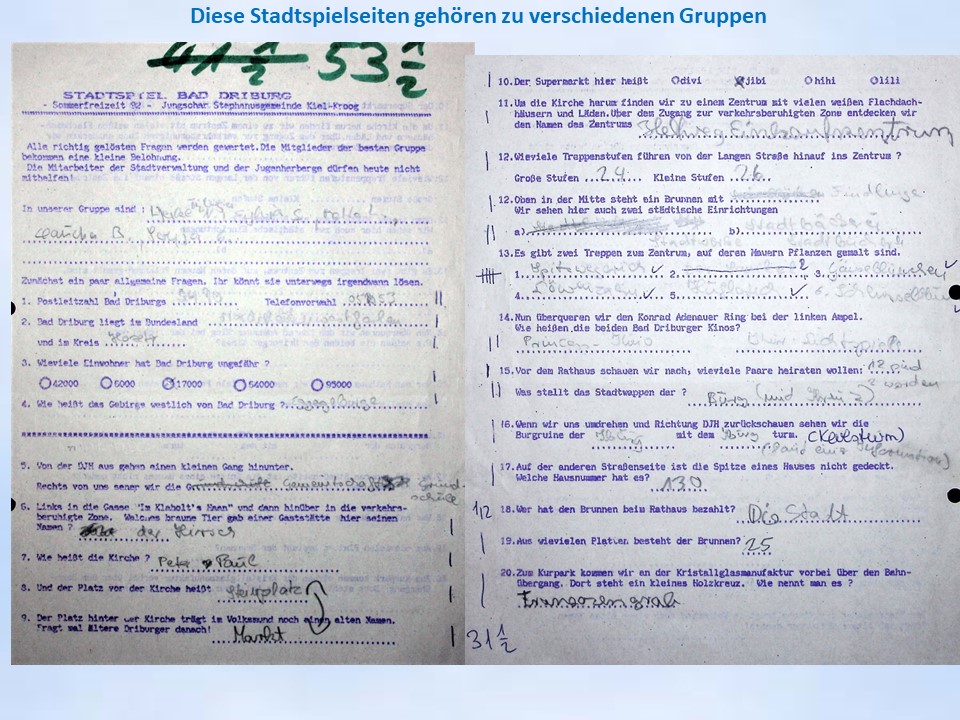 Diese Stadtspielseiten gehören zu verschiedenen Gruppen
41 1/2 53 1/2
STADTSPIEL BAD DRIBURG
- Sommerfreizeit 92 - Jungschar Stephanusgemeinde Kiel-Kroog
Alle richtig gelösten Fragen werden gewertet.Die Mitglieder der besten Gruppe
bekommen eine kleine Belohnung.
Die Mitarbeiter der Stadtverwaltung und der Jugenherberge dürfen heute nicht
mithelfen!
In unserer Gruppe sind :
Zunächst ein paar allgemeine Fragen. Ihr könnt sie unterwegs irgendwann lösen.
1. Postleitzahl Bad Driburgs Telefonvorwahl
2. Bad Driburg liegt im Bundesland
und im Kreis Höxter
3. Wieviele Einwohner hat Bad Driburg ungefähr ?
42000 6000 17000 54000 95000
4. Wie heißt das Gebirge westlich von Bad Driburg ? Eggegebirge
5. Von der DJH aus gehen einen kleinen Gang hinunter.
Rechts von uns sehen wir die
6. Links in die Gasse "Im Klaholt's Haan" und dann hinüber in die verkehrs-
beruhigte Zone. Welches braune Tier gab einer Gaststätte hier seinen
Namen ? der Hirsch
7. Wie heißt die Kirche ? Peter & Paul
8. Und der Platz vor der Kirche heißt
9. Der Platz hinter der Kirche trägt im Volksmund noch einen alten Namen.
Fragt mal ältere Driburger danach! Markt
10.Der Supermarkt hier heißt divi jibi hihi lili
11.Um die Kirche harum finden wir zu einem Zentrum mit vielen weißen Flachdach-
häusern und Läden.Über dem Zugang zur verkehrsberuhigten Zone entdecken wir
den Namen des Zentrums Hellweg Einkaufszentrum
12.Wieviele Treppenstufen führen von der Langen Straße hinauf ins Zentrum ?
Große Stufen 24 Kleine Stufen 26
12.Oben in der Mitte steht ein Brunnen mit Findlinge
Wir sehen hier auch zwei städtische Einrichtungen
a) b)
13.Es gibt zwei Treppen zum Zentrum, auf deren Mauern Pflanzen gemalt sind.
1. Spitzwegerich 2. 3. Gänseblümchen
4. Löwenzahn 5. 6.
14.Nun überqueren wir den Konrad Adenauer Ring bei der linken Ampel.
Wie heißen die beiden Bad Driburger Kinos?
15.Vor dem Rathaus schauen wir nach, wieviele Paare heiraten wollen:
Was stellt das Stadtwappen dar ? Burg (mit Kreuz)
16.Wenn wir uns umdrehen und Richtung DJH zurückschauen sehen wir die
Burgruine der Iburg mit dem turm. (Keilsturm)
(laut einer Information)
17.Auf der anderen Straßenseite ist die Spitze eines Hauses nicht gedeckt.
Welche Hausnummer hat es? 130
1/2 18.Wer hat den Brunnen beim Rathaus bezahlt? Die Stadt
19.Aus wievielen Platten besteht der Brunnen? 25
20.Zum Kurpark kommen wir an der Kristallglasmanufaktur vorbei über den Bahn-
übergang. Dort steht ein kleines Holzkreuz. Wie nennt man es ?
Franzosengrab
31 1/2